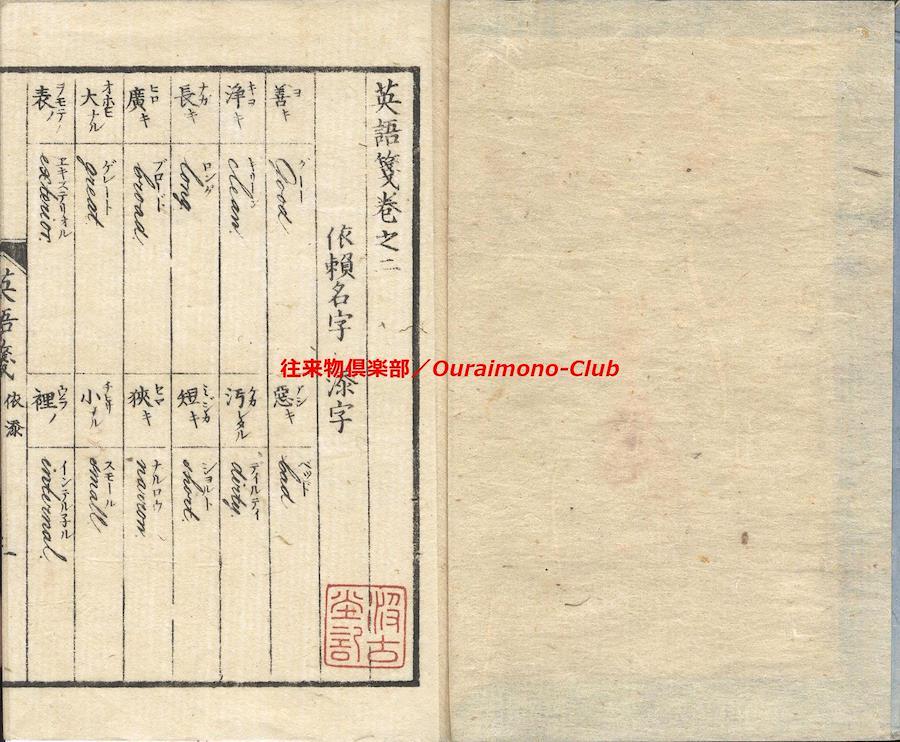 英語箋卷之二
依頼名字 添字
善キ ヨ
Good
惡キ アシ
bad
浄キ キヨ
clean.
汚レタル ケガ
ディルティ
dirty.
長キ ナガ
ロング
long.
短キ ミジカ
ショルト
short.
廣キ ヒロ
ブロード
broad.
狹キ
ナルロウ
narrow.
大ナル オホヒ
ゲレート
great
小ナル チヒサ
スモール
small
表ノ ヲモテ
エキステリオル
exterior.
裡ノ ウラ
インテル子ル
internal.
英語箋 依添 一
往来物倶楽部／Ouraimono-Club